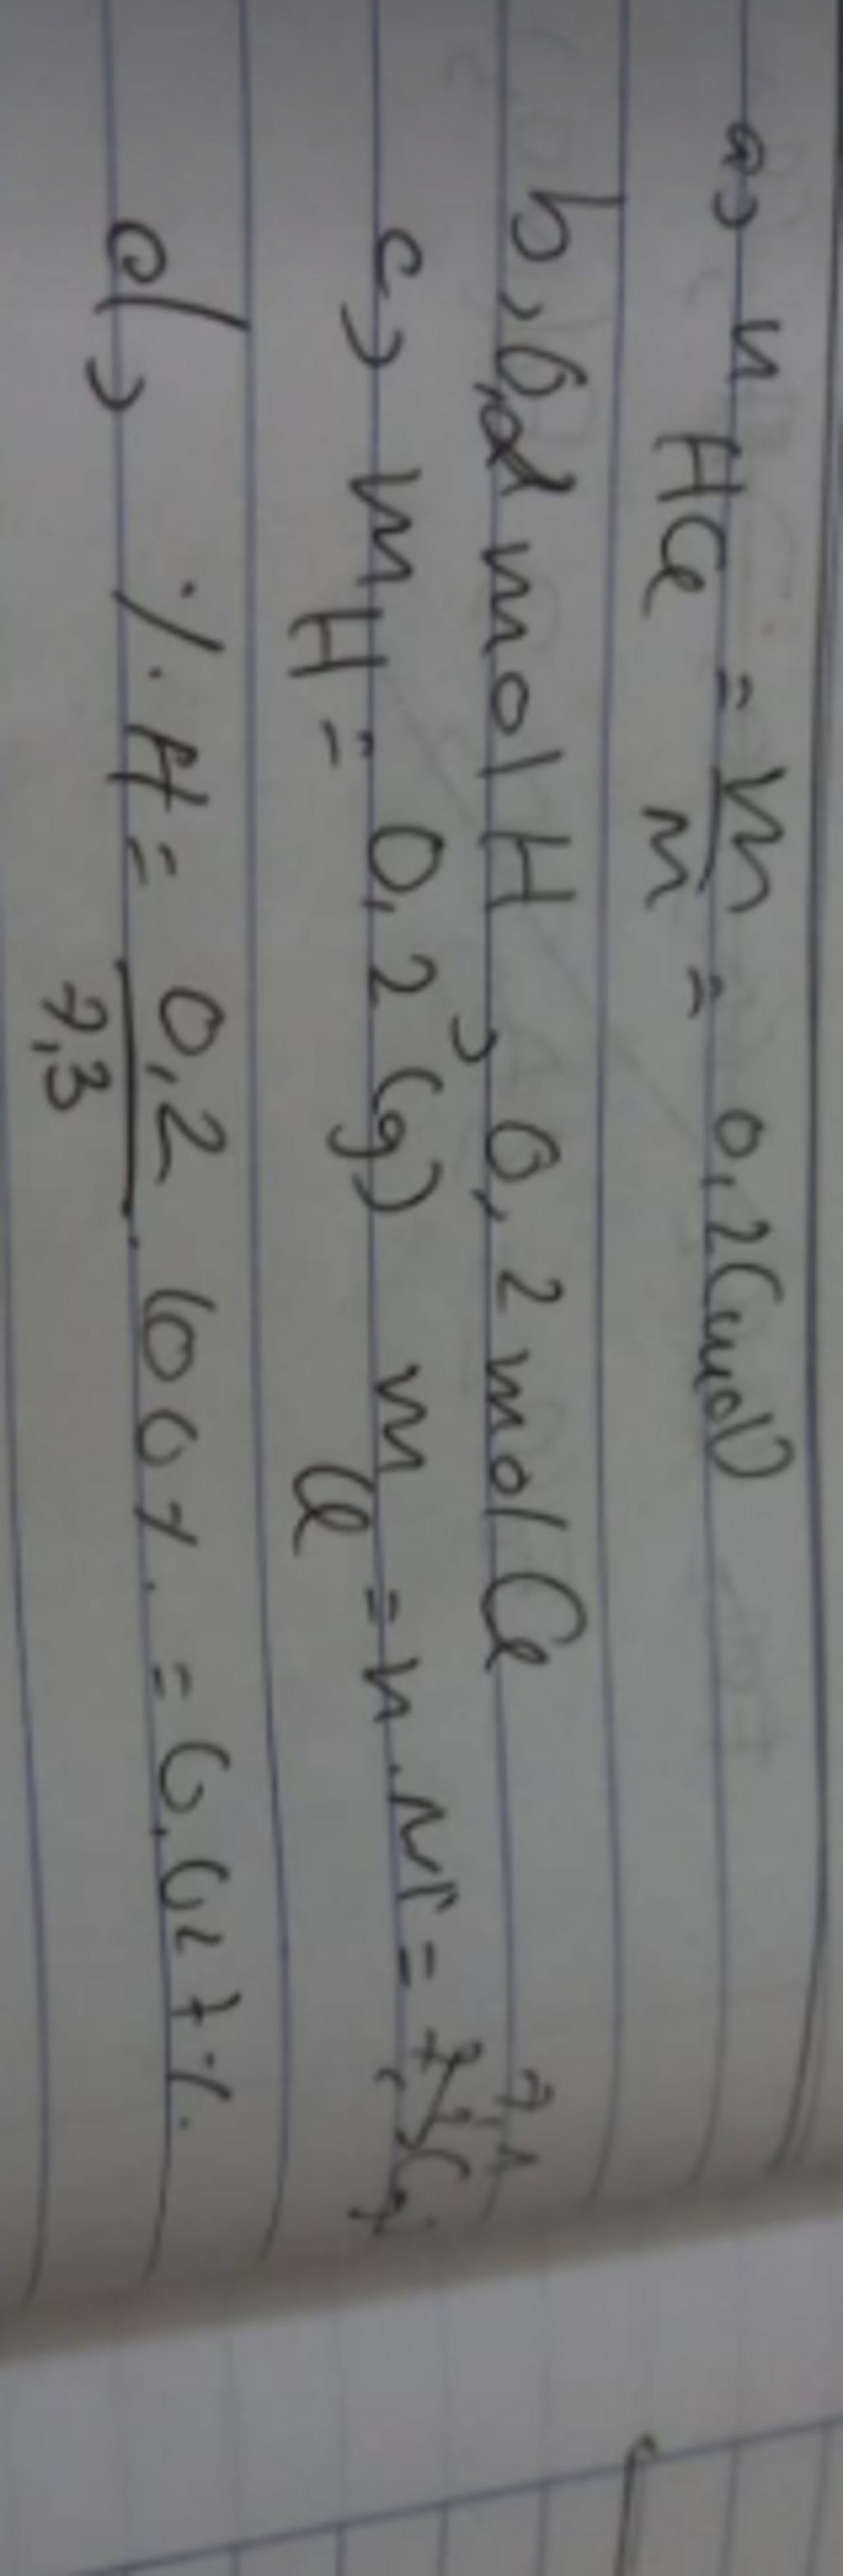 a, n HCl = m/M = 0,2(mol)
b, 0,2 mol H, 0,2 mol Cl
c, m H = 0,2 (g) m Cl = n.M = 7,1
d, % H = 0,2/7,3 . 100%. =